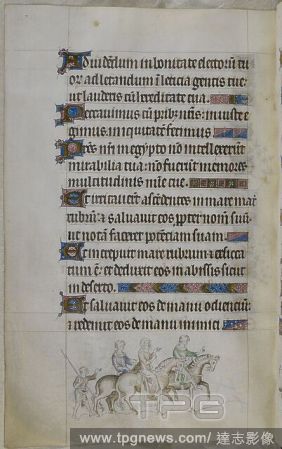 Ad videndum in bonitate electorū tu
oꝝ ad letandum ī leticia gentis tue
ut lauderis cū hereditate tua.
Peccavimus cū pr̄ib; nr̄is: iniuste e
gimus iniquitatē fecimus
Pr̄es nr̄i in egypto nō intellexerūt
mirabilia tua: nō fuerūt memores
multitudinis mīe tue.
Et irritaverūt ascēdentes in mare mar
rubrū: & salvavit eos ꝓpter nom̄ suū
ut notā faceret potēciam suam.
Et increpuit mare rubrum & exsicca
tum ē: et deduxit eos in abissis sicut
in deserto.
Et salvavit eos de manu odienciū:
& redemit eos de manu inimici
TPG
www.tpgnews.com/ 達志影像